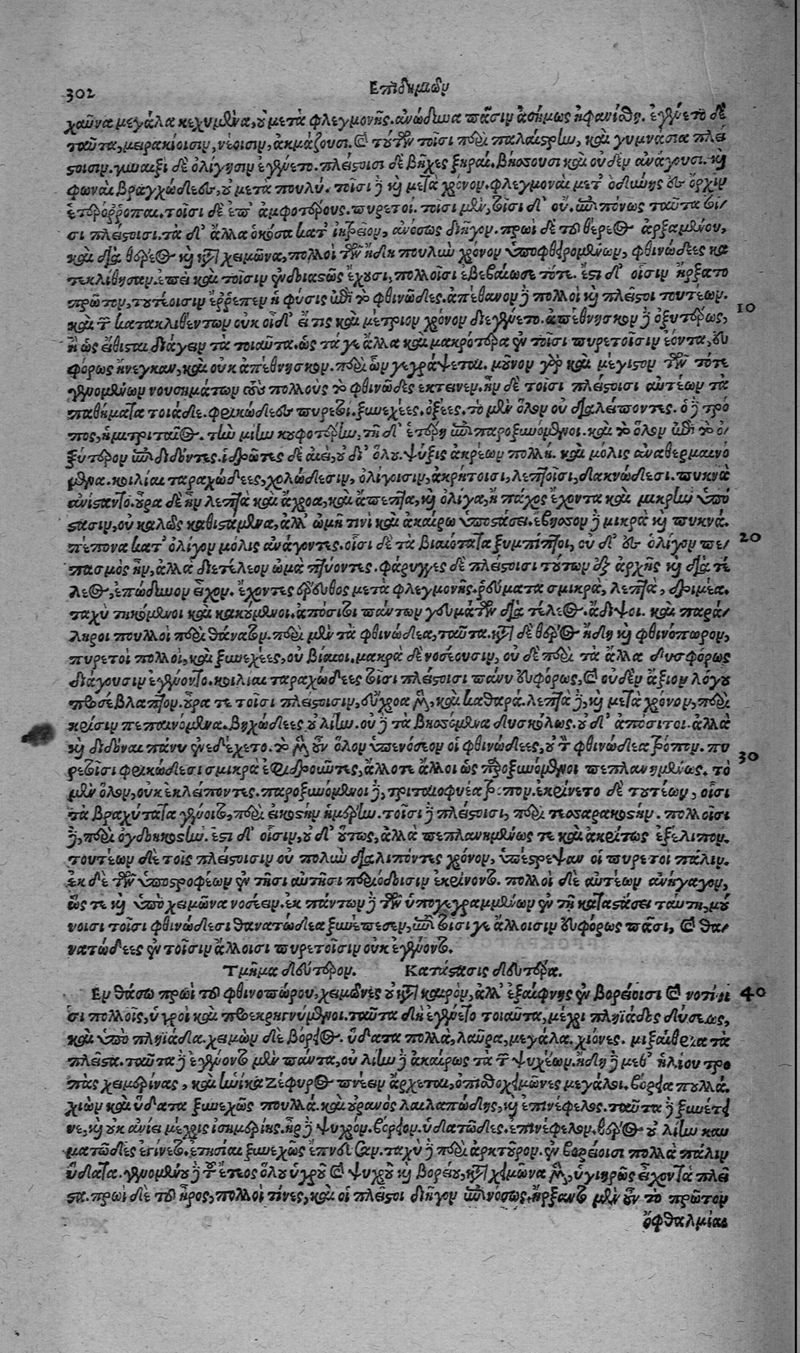 302 Επιδημιῶν
χαῦνα μεγάλα κεχυμένα, οὐ μετὰ φλεγμονῆς. ἀνώδυνα πᾶσιν ἀσήμως ἠφανίσθη. ἐγίνετο δὲ
ταῦτα, μειρακίοισιν, νέοισιν, ἀκμάζουσι. καὶ τουτέων τοῖσι περὶ παλαίστρην, καὶ γυμνάσια πλεί-
στοισιν. γυναιξὶ δὲ ὀλίγῃσιν ἐγίνετο. πλείστοισι δὲ βῆχες ξηραί. βήσσουσι καὶ οὐδὲν ἀνάγουσι. καὶ
φωναὶ βραγχώδεες, οὐ μετὰ πουλύ. τοῖσι δὲ καὶ μετὰ χρόνον. φλεγμοναὶ μετ' ὀδύνης ἐς ὄρχιν
ἑτερόρροποι. τοῖσι δὲ ἐπ' ἀμφοτέρους. πυρετοί. τοῖσι μὲν, τοῖσι δ' οὔ. ἐπιπόνως ταῦτα τοῖ-
σι πλείστοισι. τὰ δ' ἄλλα ὁκόσα κατ' ἰητρεῖον, ἀνόσως διῆγον. πρωῒ δὲ τοῦ θέρεος ἀρξαμένου,
καὶ διὰ θέρεος καὶ κατὰ χειμῶνα, πολλοὶ τῶν ἤδη πουλὺν χρόνον ὑποφθειρομένων, φθινώδεες κα
τεκλίθησαν. ἐπεὶ καὶ τοῖσιν ἐνδοιαστῶς ἔχουσι, πολλοῖσι ἐβεβαίωσε τότε. ἔστι δ' οἷσιν ἤρξατο
πρῶτον, τουτέοισιν ἔρρεπεν ἡ φύσις ἐπὶ τὸ φθινῶδες. ἀπέθανον δὲ πολλοὶ καὶ πλεῖστοι τουτέων.
καὶ τῶν κατακλιθέντων οὐκ οἶδ' εἴ τις καὶ μέτριον χρόνον διεγένετο. ἀπέθνησκον δὲ ὀξυτέρως,
ἢ ὡς εἴθισται διάγειν τὰ τοιαῦτα. ὡς τά γε ἄλλα καὶ μακρότερα ἐν τοῖσι πυρετοῖσιν ἐόντα, εὐ
φόρως ἤνεγκαν, καὶ οὐκ ἀπέθνησκον. περὶ ὧν γεγράψεται. μοῦνον γὰρ καὶ μέγιστον τῶν τότε
γενομένων νουσημάτων τοὺς πολλοὺς τὸ φθινῶδες ἔκτεινεν. ἦν δὲ τοῖσι πλείστοισι αὐτέων τὰ
παθήματα τοιάδε. φρικώδεες πυρετοί. ξυνεχέες. ὀξέες. τὸ μὲν ὅλον οὐ διαλείποντες. ὁ δὲ τρό
πος, ἡμιτριταῖος. τὴν μίαν κουφότερην, τῇ δ' ἑτέρῃ ἐπιπαροξυνόμενοι. καὶ τὸ ὅλον ἐπὶ τὸ ὀ-
ξύτερον ἐπιδιδόντες. ἱδρῶτες δὲ αἰεὶ, οὐ δι' ὅλου. ψῦξις ἀκρέων πολλή. καὶ μόλις ἀναθερμαινό
μενα. κοιλίαι ταραχώδεες, χολώδεσιν, ὀλίγοισιν, ἀκρήτοισι, λεπτοῖσι, δακνώδεσι. πυκνὰ
ἀνίσταντο. οὖρα δὲ ἦν λεπτὰ καὶ ἄχροα, καὶ ἄπεπτα, καὶ ὀλίγα, ἢ πάχος ἔχοντα καὶ μικρὴν ὑπό
στασιν, οὐ καλῶς καθιστάμενα, ἀλλ' ὠμῇ τινὶ καὶ ἀκαίρῳ ὑποστάσει. ἔβησσον δὲ μικρὰ καὶ πυκνά.
πέπονα κατ' ὀλίγον μόλις ἀνάγοντες. οἷσι δὲ τὰ βιαιότατα ξυμπίπτοι, οὐδ' ἐς ὀλίγον πε-
πασμὸς ἦν, ἀλλὰ διετέλεον ὠμὰ πτύοντες. φάρυγγες δὲ πλείστοισι τούτων ἐξ ἀρχῆς καὶ διὰ τέ
λεος, ἐπώδυνον εἶχον. ἔχοντες ἔρευθος μετὰ φλεγμονῆς. ῥεύματα σμικρά, λεπτὰ, δριμέα.
ταχὺ τηκόμενοι καὶ κακούμενοι. ἀπόσιτοι πάντων γευμάτων διὰ τέλεος. ἄδιψοι. καὶ παρά-
ληροι πουλλοὶ περὶ θάνατον. περὶ μὲν τὰ φθινώδεα, ταῦτα. κατὰ δὲ θέρος ἤδη καὶ φθινόπωρον,
πυρετοὶ πολλοὶ, καὶ ξυνεχέες, οὐ βίαιοι. μακρὰ δὲ νοσέουσιν, οὐδὲ περὶ τὰ ἄλλα δυσφόρως
διάγουσιν ἐγένοντο. κοιλίαι ταραχώδεες τοῖσι πλείστοισι πάνυ εὐφόρως, καὶ οὐδὲν ἄξιον λόγου
προσέβλαπτον. οὖρά τε τοῖσι πλείστοισιν, εὔχροα μὲν, καὶ καθαρά. λεπτὰ δὲ, καὶ μετὰ χρόνον, περὶ
κρίσιν πεπαινόμενα. βηχώδεες οὐ λίην. οὐδὲ τὰ βησσόμενα δυσκόλως. οὐδ' ἀπόσιτοι. ἀλλὰ
καὶ διδόναι πάνυ ἐνεδέχετο. τὸ μὲν οὖν ὅλον ὑπενόσεον οἱ φθινώδεες, οὐ τὸν φθινώδεα τρόπον. πυ
ρετοῖσι φρικώδεσι σμικρὰ ἐφιδροῦντες, ἄλλοτε ἄλλοι ὡς παροξυνόμενοι πεπλανημένως. τὸ
μὲν ὅλον, οὐκ ἐκλείποντες. παροξυνόμενοι δὲ, τριταιοφυέα τρόπον. ἐκρίνετο δὲ τουτέων, οἷσι
τὰ βραχύτατα γένοιτο, περὶ εἰκοστὴν ἡμέρην. τοῖσι δὲ πλείστοισι, περὶ τεσσαρακοστήν. πολλοῖσι
δὲ, περὶ ὀγδοηκοστήν. ἔστι δ' οἷσιν, οὐδ' οὕτως, ἀλλὰ πεπλανημένως τε καὶ ἀκρίτως ἐξέλιπον.
τουτέων δὲ τοῖς πλείστοισιν οὐ πολὺν διαλιπόντες χρόνον, ὑπέστρεψαν οἱ πυρετοὶ πάλιν.
ἐκ δὲ τῶν ὑποστροφέων ἐν τῇσι αὐτῇσι περιόδοισιν ἐκρίνοντο. πολλοὶ δὲ αὐτέων ἀνήγαγον,
ὥς τε καὶ ὑπὸ χειμῶνα νοσέειν. ἐκ πάντων δὲ τῶν ὑπογεγραμμένων ἐν τῇ καταστάσει ταύτῃ, μού
νοισι τοῖσι φθινώδεσι θανατώδεα ξυνέπεσεν, ἐπεὶ τοῖσί γε ἄλλοισιν εὐφόρως πᾶσι, καὶ θα-
νατώδεες ἐν τοῖσιν ἄλλοισι πυρετοῖσιν οὐκ ἐγένοντο.
Τμῆμα δεύτερον. Κατάστασις δευτέρα.
Εν θάσῳ πρωῒ τοῦ φθινοπώρου, χειμῶνες οὐ κατὰ καιρὸν, ἀλλ' ἐξαίφνης ἐν βορείοισι καὶ νοτίοι
σι πολλοῖς, ὑγροὶ καὶ προεκρηγνύμενοι. ταῦτα δὴ ἐγένετο τοιαῦτα, μέχρι πληϊάδος δύσεως,
καὶ ὑπὸ πληϊάδα. χειμὼν δὲ βόρειος. ὕδατα πολλὰ, λαῦρα, μεγάλα. χιόνες. μιξαίθρια τὰ
πλεῖστα. ταῦτα δὲ ἐγένοντο μὲν πάντα, οὐ λίην δὲ ἀκαίρως τὰ τῶν ψυχέων. ἤδη δὲ μεθ' ἡλίου τρο
πὰς χειμερινὰς, καὶ ἡνίκα ζέφυρος πνέειν ἄρχεται, ὀπισθοχειμῶνες μεγάλοι. βόρεια πολλά.
χιὼν καὶ ὕδατα ξυνεχῶς πουλλά. καὶ οὐρανὸς λαιλαπώδης, καὶ ἐπινέφελος. ταῦτα δὲ ξυνέτει
νε, καὶ οὐκ ἀνίει μέχρις ἰσημερίης. ἦρ δὲ ψυχρόν. βόρειον. ὑδατῶδες. ἐπινέφελον. θέρος οὐ λίην καυ
ματῶδες ἐγίνετο. ἐτησίαι ξυνεχῶς ἔπνευσαν. ταχὺ δὲ περὶ ἀρκτοῦρον. ἐν βορείοισι πολλὰ πάλιν
ὕδατα. γενομένου δὲ τοῦ ἔτεος ὅλου ὑγροῦ καὶ ψυχροῦ καὶ βορείου, κατὰ χειμῶνα μὲν, ὑγιηρῶς εἶχον τὰ πλεῖ
στα. πρωῒ δὲ τοῦ ἦρος, πολλοί τινες, καὶ οἱ πλεῖστοι διῆγον ἐπινόσως. ἤρξαντο μὲν οὖν τὸ πρῶτον
ὀφθαλμίαι
10
20
30
40